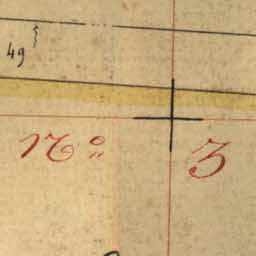 49
N° 3